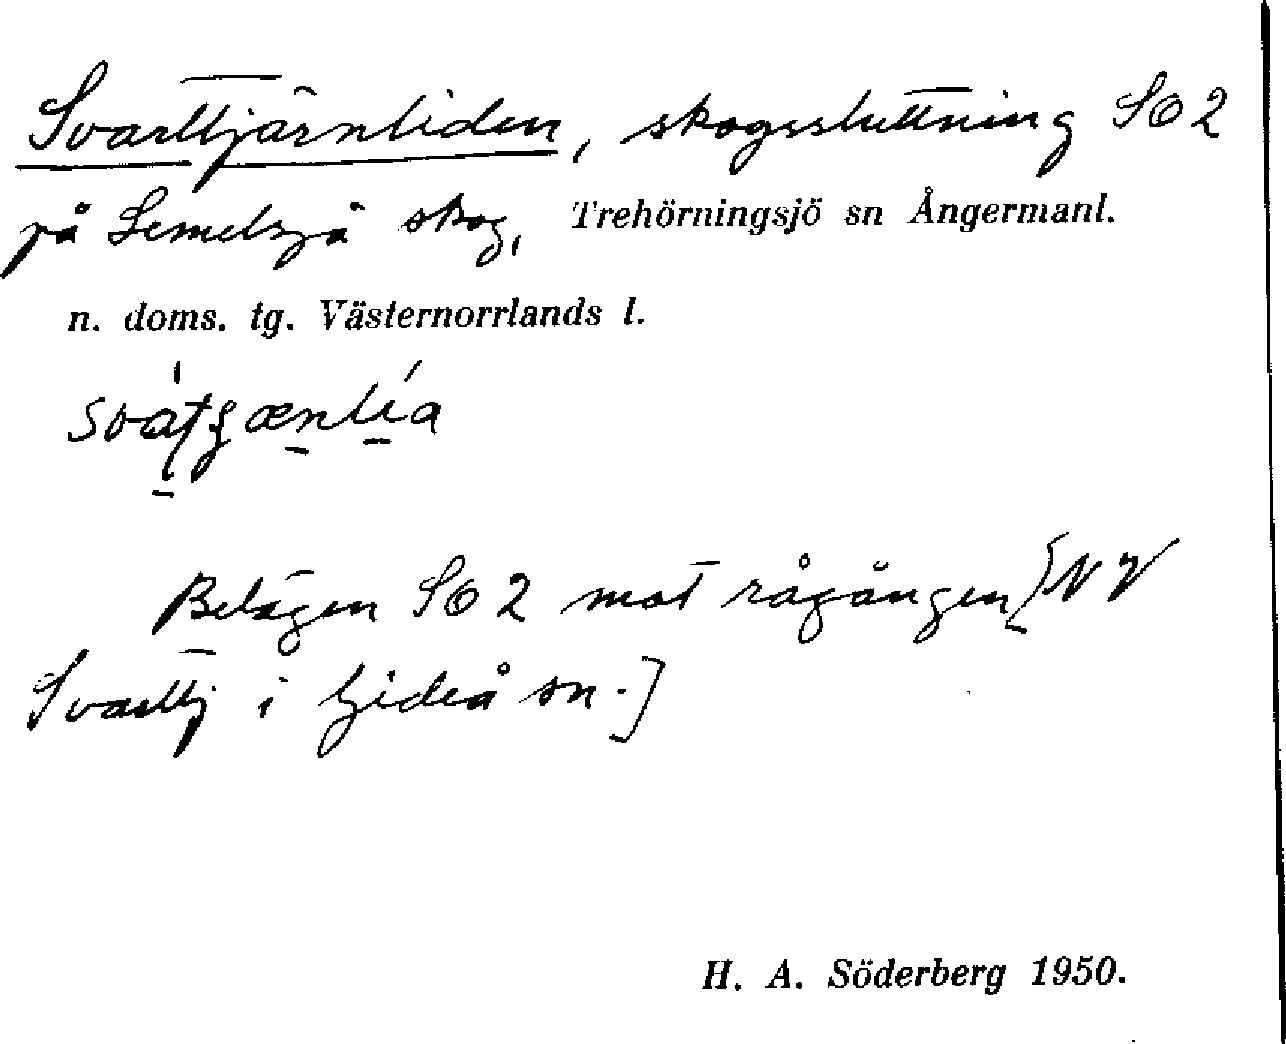 Svarttjärnliden, skogssluttning SO 2
på Lemelsjö skog, Trehörningsjö sn Ångermanl.
n. doms. tg. Västernorrlands l.
Belägen SO 2 mot rågången [NV
Svarttj i Gideå sn.]
H. A. Söderberg 1950.